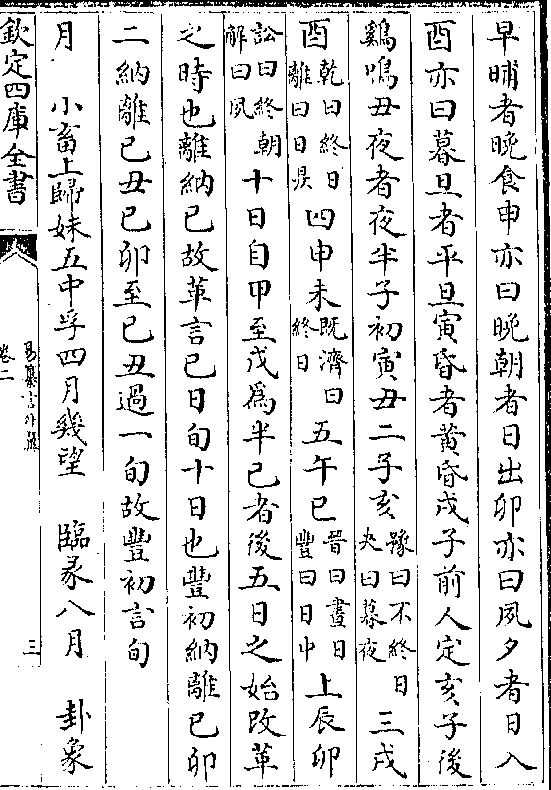 早晡者晚食申亦曰晚朝者日出卯亦曰夙夕者日入
酉亦曰暮旦者平旦寅昏者黄昏戌子前人定亥子後
鷄鳴丑夜者夜半子初寅丑二子亥豫曰不終日夬曰暮夜三戌
酉乾曰終日離曰日昃四申未既濟曰終日五午巳晋曰晝日豐曰日中上辰卯
訟曰終朝解曰夙十日自甲至戊為半己者後五日之始改革
之時也離納己故革言己日旬十日也豐初納離己卯
二納離己丑己卯至己丑過一旬故豐初言旬
月 小畜上歸妹五中孚四月幾望 臨彖八月 卦象
欽定四庫全書
易纂言外翼
卷二
三